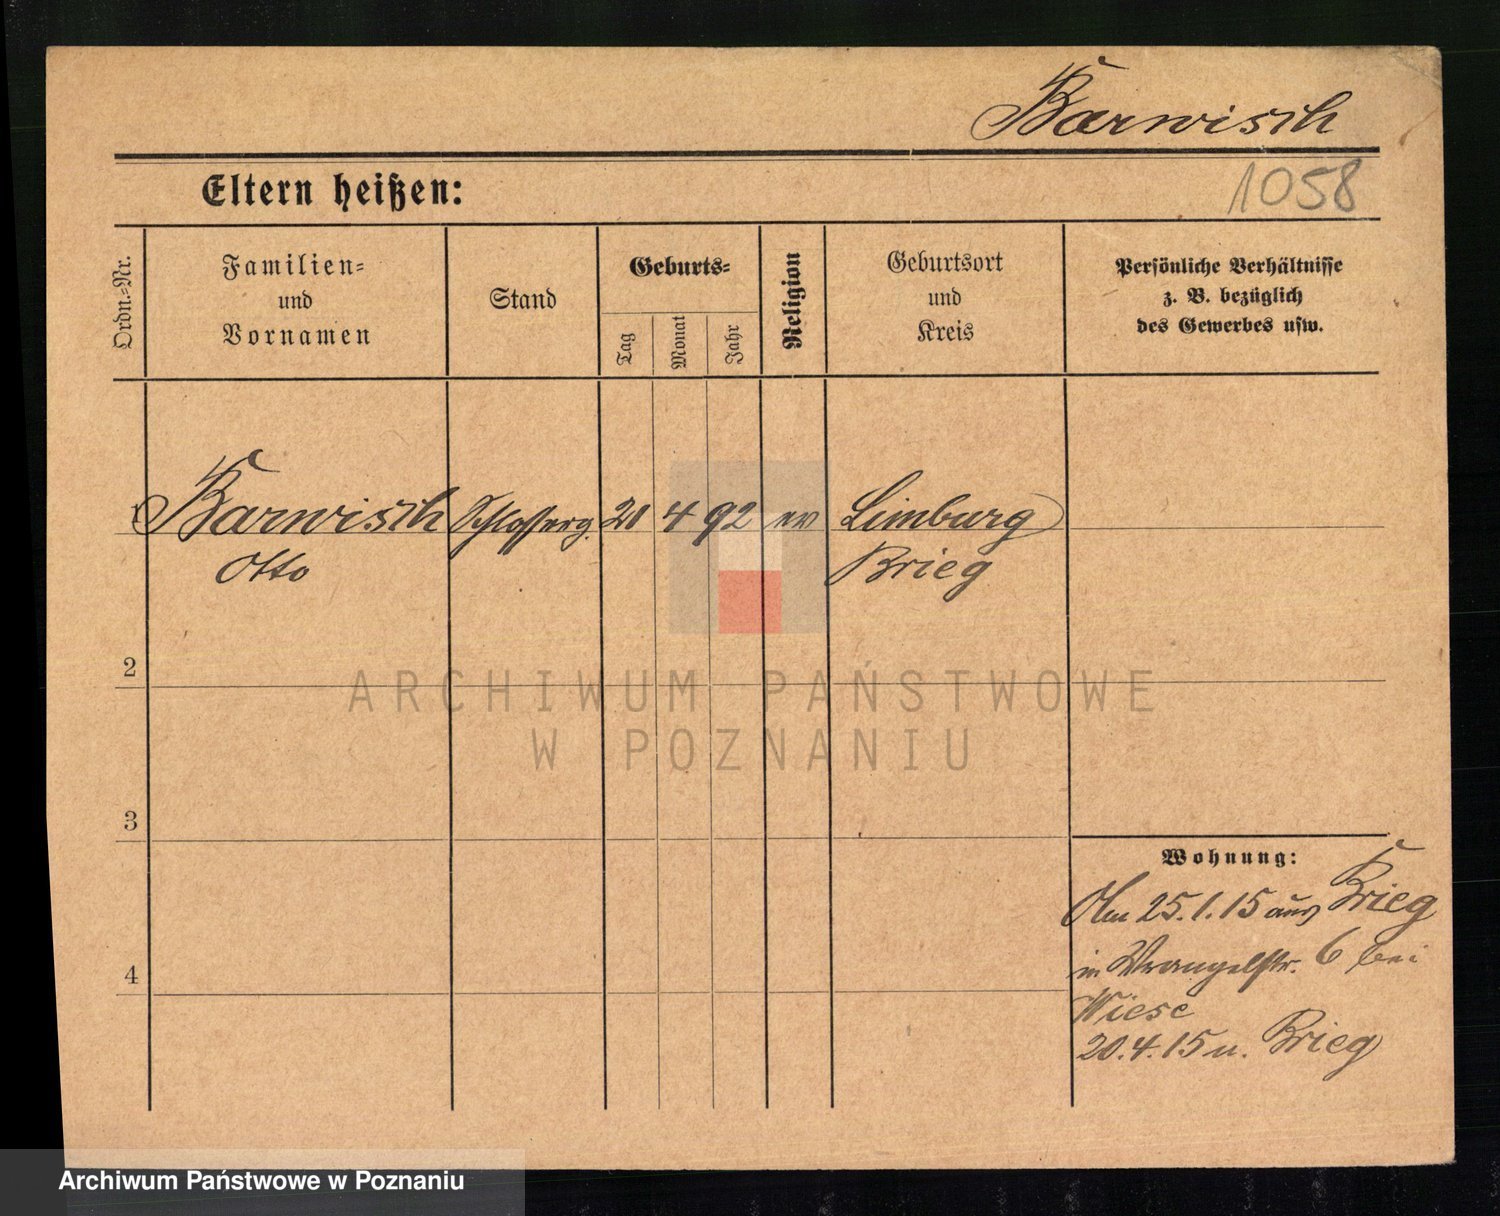 Barwisch
Eltern heißen:
1058
Ordn.-Nr.
Familien-
und
Vornamen
Stand
Geburts-
Tag
Monat
Jahr
Religion
Geburtsort
und
Kreis
Persönliche Verhältnisse
z. B. bezüglich
des Gewerbes usw.
1 Barwisch Schlosserg. 21 4 92 ev Limburg
Otto Brieg
2
3
4
Wohnung:
Am 25.1.15 aus Brieg
in Wrangelstr. 6 bei
Wiese
20.4.15 n. Brieg
ARCHIWUM PAŃSTWOWE
W POZNANIU
Archiwum Państwowe w Poznaniu